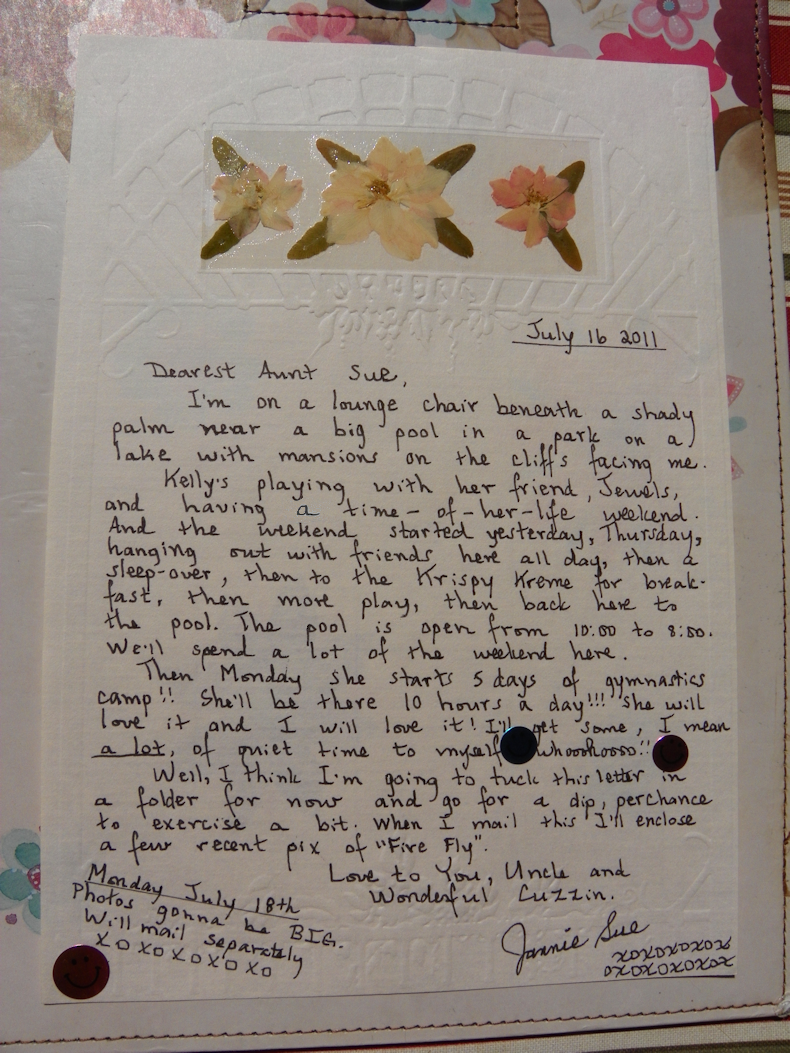 July 16 2011
Dearest Aunt Sue,
I'm on a lounge chair beneath a shady
palm near a big pool in a park on a
lake with mansions on the cliffs facing me.
Kelly's playing with her friend, Jewels,
and having a time-of-her-life weekend.
And the weekend started yesterday, Thursday,
hanging out with friends here all day, then a
sleep-over, then to the Krispy Kreme for break-
fast, then more play, then back here to
the pool. The pool is open from 10:00 to 8:00.
We'll spend a lot of the weekend here.
Then Monday she starts 5 days of gymnastics
camp!! She'll be there 10 hours a day!!! She will
love it and I will love it! I'll get some, I mean
a lot, of quiet time to myself whoohooo!!
Well, I think I'm going to tuck this letter in
a folder for now and go for a dip, perchance
to exercise a bit. When I mail this I'll enclose
a few recent pix of "Fire Fly".
Love to You, Uncle and
Wonderful Cuzzin.
Jannie Sue
xoxoxoxox
oxoxoxoxox
Monday July 18th
Photos gonna be BIG.
Will mail separately
xoxoxoxoxo